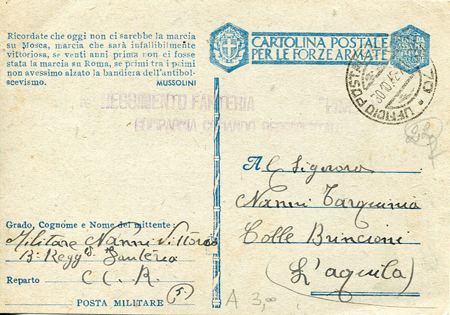 Ricordate che oggi non ci sarebbe la marcia
su Mosca, marcia che sarà infallibilmente
vittoriosa, se venti anni prima non ci fosse
stata la marcia su Roma, se primi tra i primi
non avessimo alzato la bandiera dell'antibol-
scevismo.
MUSSOLINI
CARTOLINA POSTALE
PER LE FORZE ARMATE
UFFICIO POSTA
REGGIMENTO FANTERIA
COMPAGNIA COMANDO
Al Signora
Nanni Tarquinia
Colle Brincioni
(L'aquila)
Grado, Cognome e Nome del mittente:
Militare Nanni Vittorio
Fanteria
Reparto C C. R.
POSTA MILITARE 5.
A 3,=